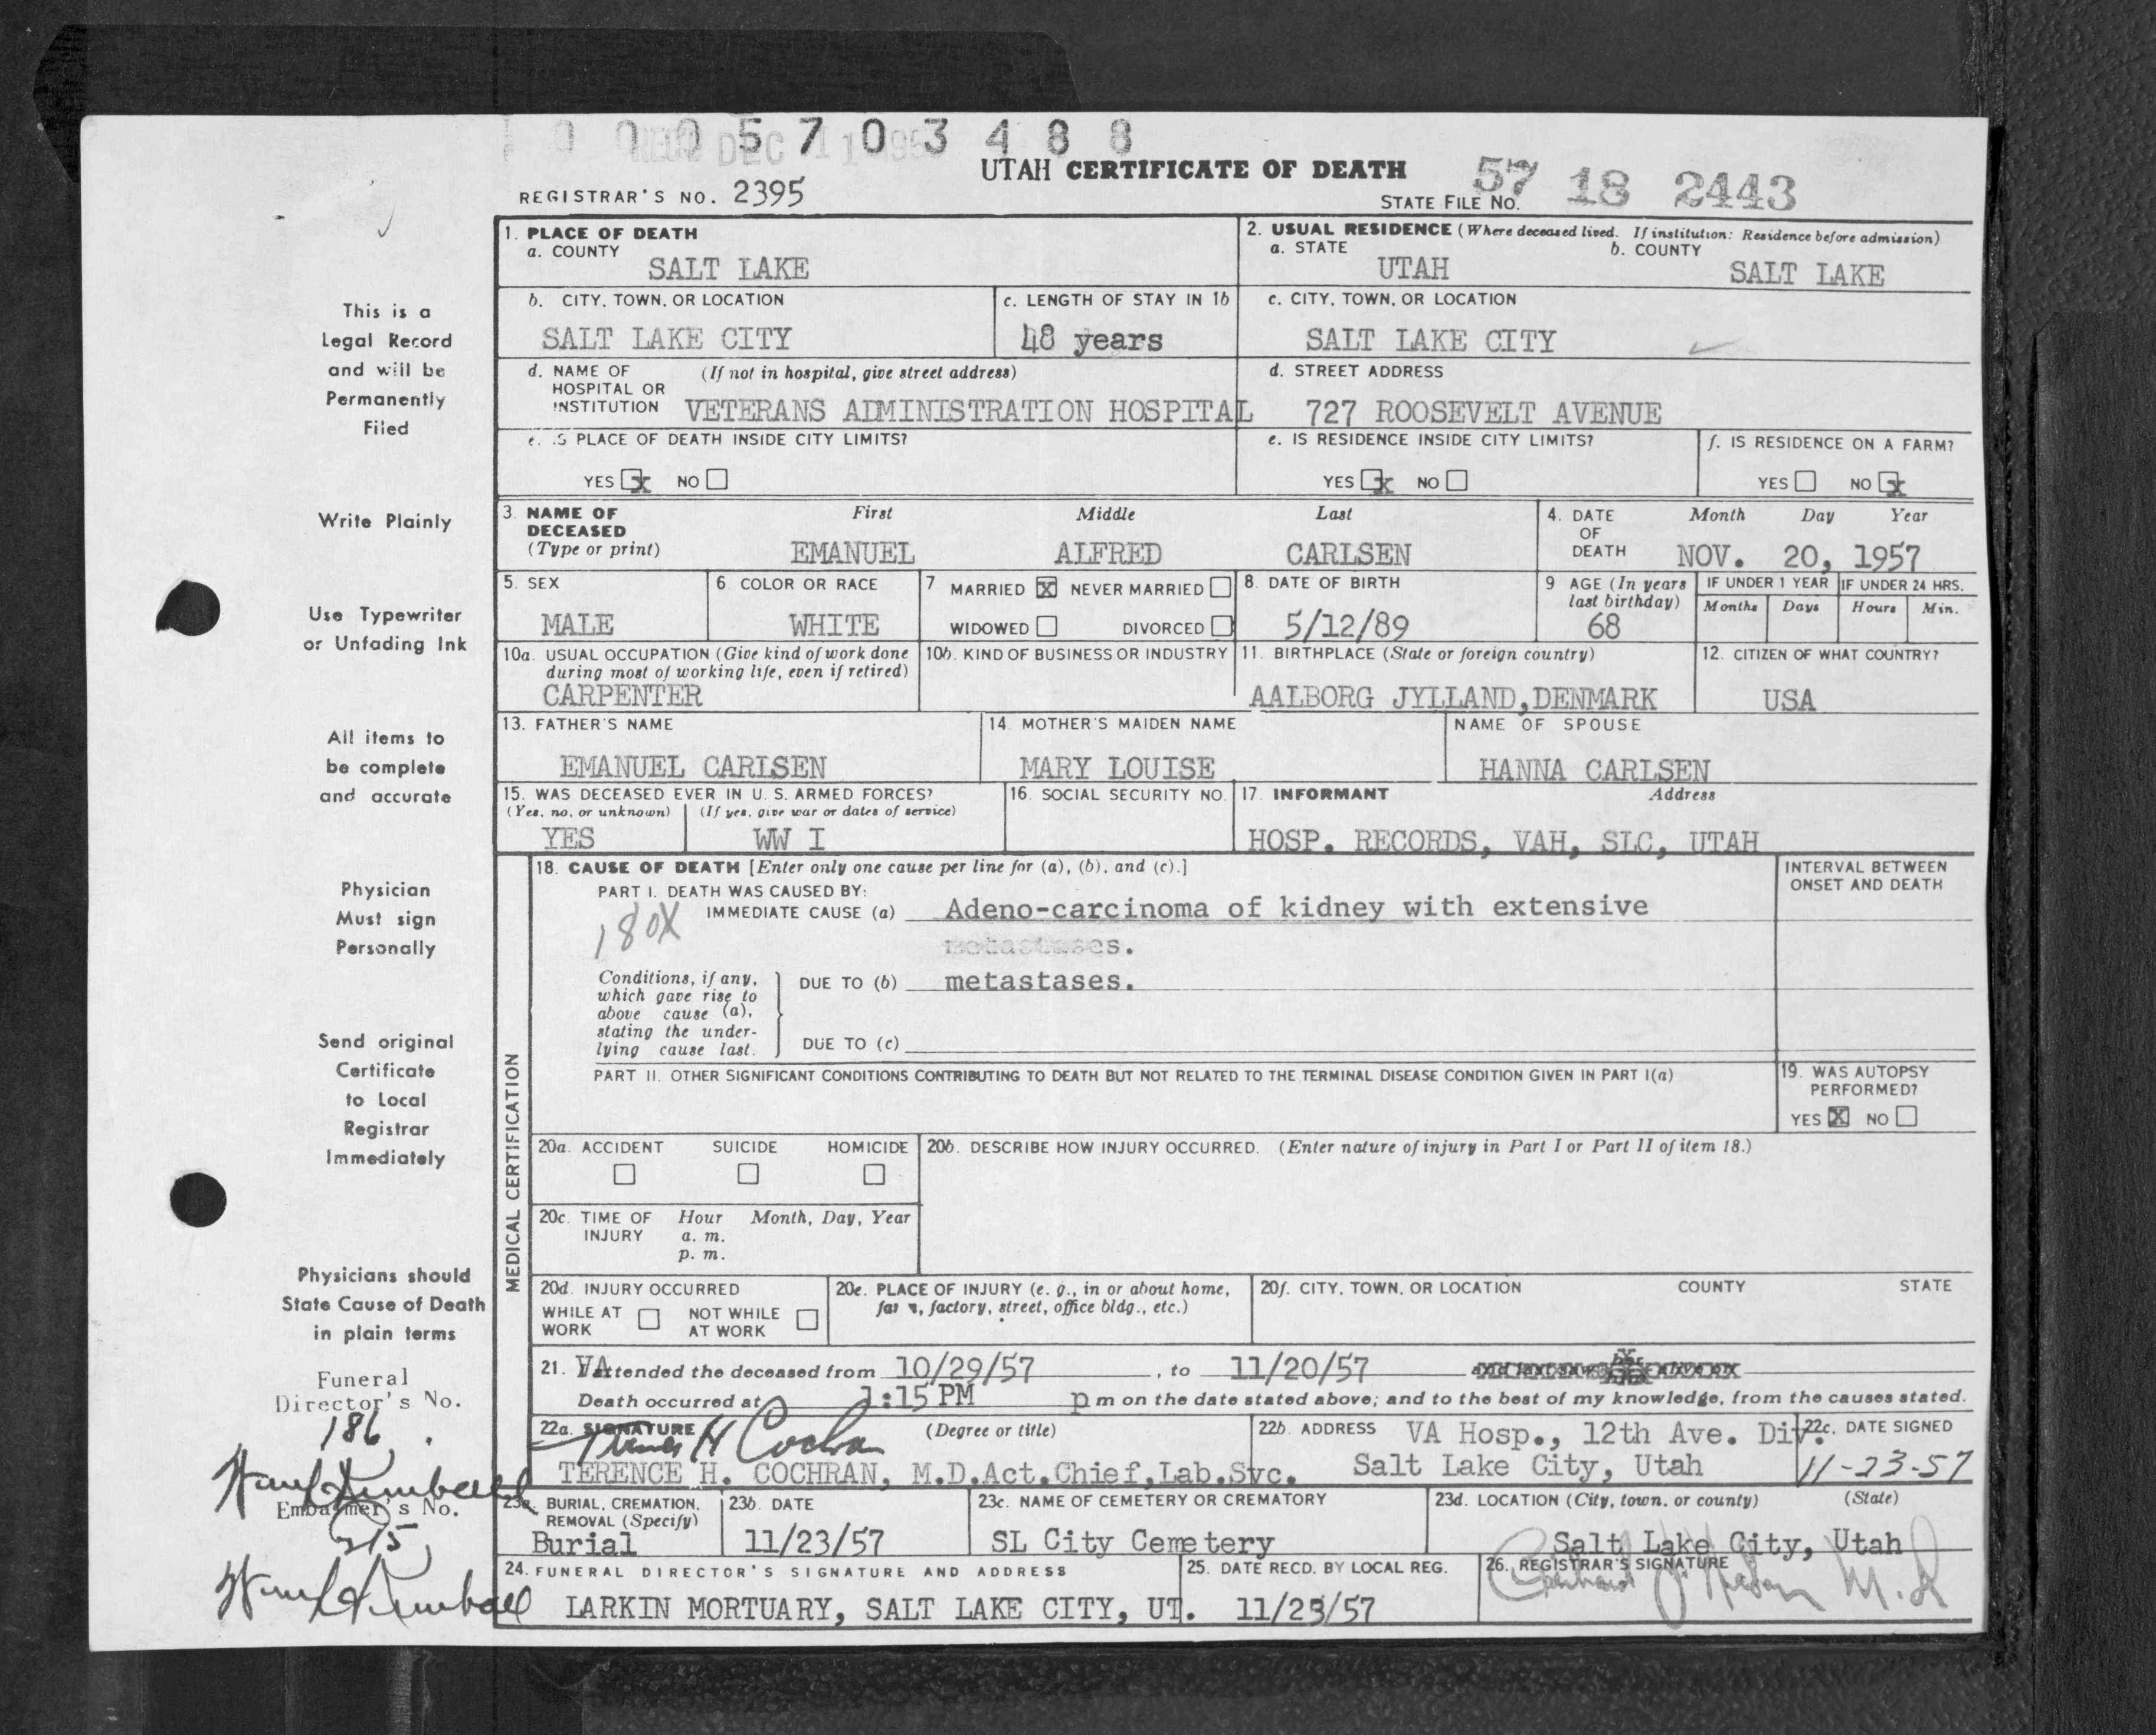 0 0 0 5 7 0 3 4 8 8
UTAH CERTIFICATE OF DEATH
REGISTRAR'S NO. 2395
STATE FILE NO. 57 18 2443
1. PLACE OF DEATH
a. COUNTY
SALT LAKE
2. USUAL RESIDENCE (Where deceased lived. If institution: Residence before admission)
a. STATE b. COUNTY
UTAH SALT LAKE
b. CITY, TOWN, OR LOCATION
SALT LAKE CITY
c. LENGTH OF STAY IN 1b
48 years
c. CITY, TOWN, OR LOCATION
SALT LAKE CITY
d. NAME OF HOSPITAL OR INSTITUTION (If not in hospital, give street address)
VETERANS ADMINISTRATION HOSPITAL
d. STREET ADDRESS
727 ROOSEVELT AVENUE
e. IS PLACE OF DEATH INSIDE CITY LIMITS?
YES x NO
e. IS RESIDENCE INSIDE CITY LIMITS?
YES x NO
f. IS RESIDENCE ON A FARM?
YES NO x
3. NAME OF DECEASED (Type or print)
First Middle Last
EMANUEL ALFRED CARLSEN
4. DATE OF DEATH Month Day Year
NOV. 20, 1957
5. SEX
MALE
6. COLOR OR RACE
WHITE
7 MARRIED X NEVER MARRIED
WIDOWED DIVORCED
8. DATE OF BIRTH
5/12/89
9 AGE (In years last birthday)
68
IF UNDER 1 YEAR
Months Days
IF UNDER 24 HRS.
Hours Min.
10a. USUAL OCCUPATION (Give kind of work done during most of working life, even if retired)
CARPENTER
10b. KIND OF BUSINESS OR INDUSTRY
11. BIRTHPLACE (State or foreign country)
AALBORG JYLLAND, DENMARK
12. CITIZEN OF WHAT COUNTRY?
USA
13. FATHER'S NAME
EMANUEL CARLSEN
14. MOTHER'S MAIDEN NAME
MARY LOUISE
NAME OF SPOUSE
HANNA CARLSEN
15. WAS DECEASED EVER IN U. S. ARMED FORCES?
(Yes, no, or unknown) (If yes, give war or dates of service)
YES WW I
16. SOCIAL SECURITY NO.
17. INFORMANT Address
HOSP. RECORDS, VAH, SLC, UTAH
MEDICAL CERTIFICATION
18. CAUSE OF DEATH [Enter only one cause per line for (a), (b), and (c).]
INTERVAL BETWEEN ONSET AND DEATH
PART I. DEATH WAS CAUSED BY:
180X
IMMEDIATE CAUSE (a) Adeno-carcinoma of kidney with extensive
metastases.
Conditions, if any, which gave rise to above cause (a), stating the underlying cause last.
DUE TO (b) metastases.
DUE TO (c)
PART II. OTHER SIGNIFICANT CONDITIONS CONTRIBUTING TO DEATH BUT NOT RELATED TO THE TERMINAL DISEASE CONDITION GIVEN IN PART I(a)
19. WAS AUTOPSY PERFORMED?
YES X NO
20a. ACCIDENT SUICIDE HOMICIDE
20b. DESCRIBE HOW INJURY OCCURRED. (Enter nature of injury in Part I or Part II of item 18.)
20c. TIME OF INJURY Hour Month, Day, Year
a. m.
p. m.
20d. INJURY OCCURRED
WHILE AT WORK NOT WHILE AT WORK
20e. PLACE OF INJURY (e. g., in or about home, farm, factory, street, office bldg., etc.)
20f. CITY, TOWN, OR LOCATION COUNTY STATE
21. VA attended the deceased from 10/29/57, to 11/20/57
Death occurred at 1:15 PM p m on the date stated above; and to the best of my knowledge, from the causes stated.
22a. SIGNATURE (Degree or title)
Terence H Cochran
TERENCE H. COCHRAN, M.D.Act.Chief,Lab.Svc.
22b. ADDRESS VA Hosp., 12th Ave. Div.
Salt Lake City, Utah
22c. DATE SIGNED
11-23-57
23a. BURIAL, CREMATION, REMOVAL (Specify)
Burial
23b. DATE
11/23/57
23c. NAME OF CEMETERY OR CREMATORY
SL City Cemetery
23d. LOCATION (City, town, or county) (State)
Salt Lake City, Utah
24. FUNERAL DIRECTOR'S SIGNATURE AND ADDRESS
LARKIN MORTUARY, SALT LAKE CITY, UT.
25. DATE RECD. BY LOCAL REG.
11/23/57
26. REGISTRAR'S SIGNATURE
This is a
Legal Record
and will be
Permanently
Filed
Write Plainly
Use Typewriter
or Unfading Ink
All items to
be complete
and accurate
Physician
Must sign
Personally
Send original
Certificate
to Local
Registrar
Immediately
Physicians should
State Cause of Death
in plain terms
Funeral
Director's No.
186
Embalmer's No.